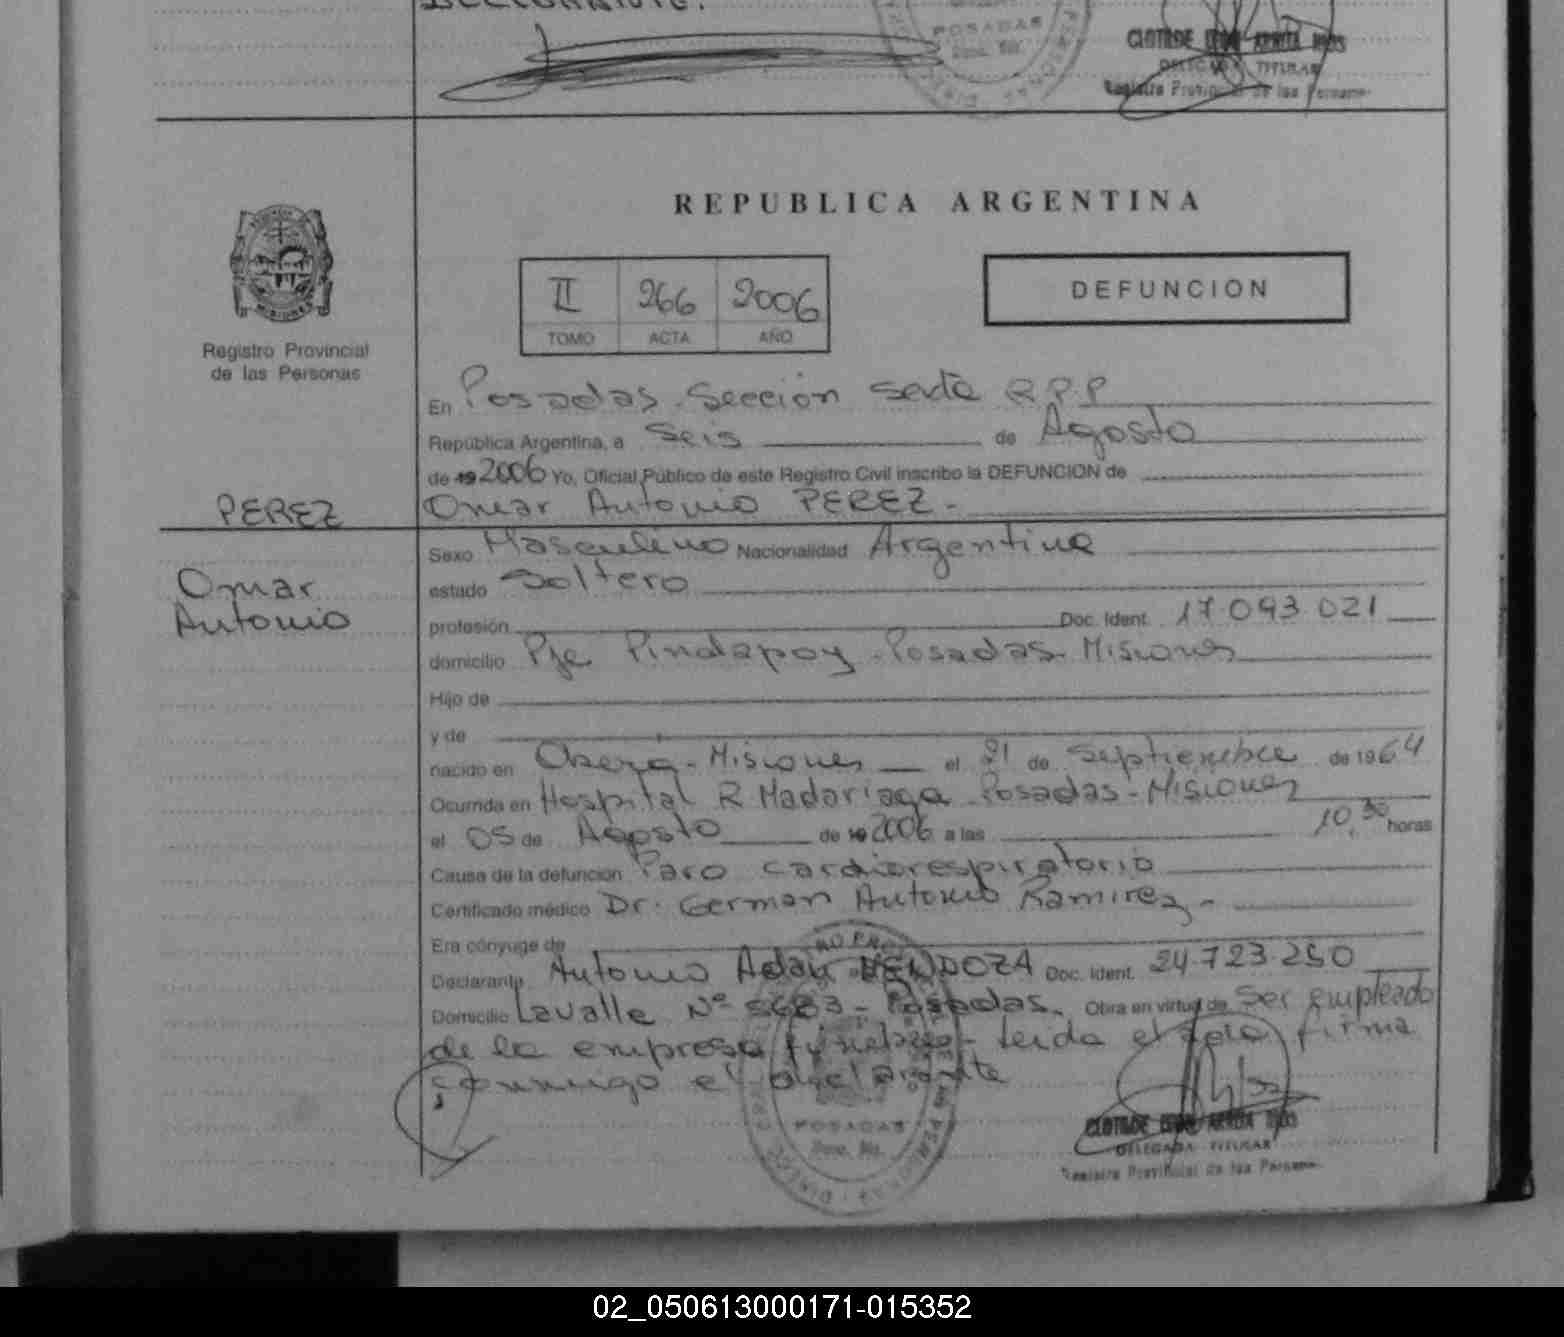 POSADAS
DELEGADA TITULAR
Registro Provincial de las Personas
REPUBLICA ARGENTINA
II 266 2006
TOMO ACTA AÑO
DEFUNCION
Registro Provincial
de las Personas
En Posadas Sección Sexta R.P.P
República Argentina, a Seis de Agosto
de 19 2006 Yo, Oficial Público de este Registro Civil inscribo la DEFUNCION de
PEREZ
Omar Antonio PEREZ.-
Omar
Antonio
Sexo Masculino Nacionalidad Argentina
estado Soltero
profesión Doc. Ident. 17.093.021
domicilio Pje Pindapoy - Posadas - Misiones
Hijo de
y de
nacido en Obera - Misiones el 21 de Septiembre de 1964
Ocurrida en Hospital R. Madariaga - Posadas - Misiones
el 05 de Agosto de 19 2006 a las 10,30 horas
Causa de la defunción Paro cardiorespiratorio
Certificado médico Dr. German Antonio Ramirez -
Era cónyuge de
Declarante Antonio Adan MENDOZA Doc. Ident. 24.723.250
Domicilio Lavalle Nº 5683 - Posadas. Obra en virtud de Ser empleado
de la empresa funebre - Leida el acta firma
conmigo el declarante
POSADAS
DELEGADA TITULAR
Registro Provincial de las Personas
02_050613000171-015352